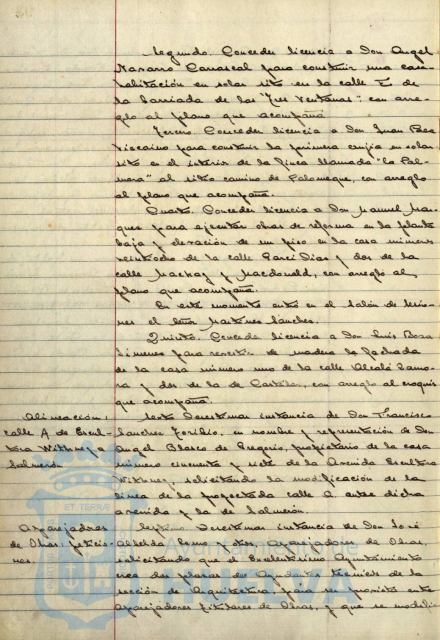 Segundo. Conceder licencia a Don Angel
Navarro Carrascal para construir una casa
habitación en solar sito en la calle E de
la barriada de las "Tres Ventanas" con arre-
glo al plano que acompaña.
Tercero. Conceder licencia a Don Juan Baa
Viscaino para construir la primera crujia en solar
sito en el interior de la finca llamada "la Pal-
mera" al sitio camino de Palomeque, con arreglo
al plano que acompaña.
Cuarto. Conceder licencia a Don Manuel Mar-
ques para ejecutar obras de reforma en la planta
baja y elevación de un piso en la casa número
veintiocho de la calle Garci Dias y dos de la
calle Mackay y Macdonald, con arreglo al
plano que acompaña.
En este momento entró en el Salón de Sesio-
nes el Señor Martines Sanches.
Quinto. Conceder licencia a Don Luis Bosa
Simenes para revestir de madera la fachada
de la casa número uno de la calle Alcalá Zamo-
ra y dos de la de Castelar, con arreglo al croquis
que acompaña.
Alineación:
calle A de Escul-
tora Witney a
Salmerón
Sexto. Desestimar instancia de Don Francisco
Sanches Toribio, en nombre y representación de Don
Angel Blasco de Gregorio, propietario de la casa
número cincuenta y siete de la Avenida Escultora
Witney, solicitando la modificación de la
línea de la proyectada calle A entre dicha
avenida y la de Salmerón.
Aparejadores
de Obras: peticio-
nes.
Septimo. Desestimar instancia de Don José
Alberda y otros Aparejadores de Obras,
solicitando que el Excelentisimo Ayuntamiento
crea dos plazas de Ayudantes técnicos de la
sección de Arquitectura, para ser provista entre
Aparejadores titulares de Obras, y que se modifi-
ET TERRÆ
Ayuntamiento de
HUELVA